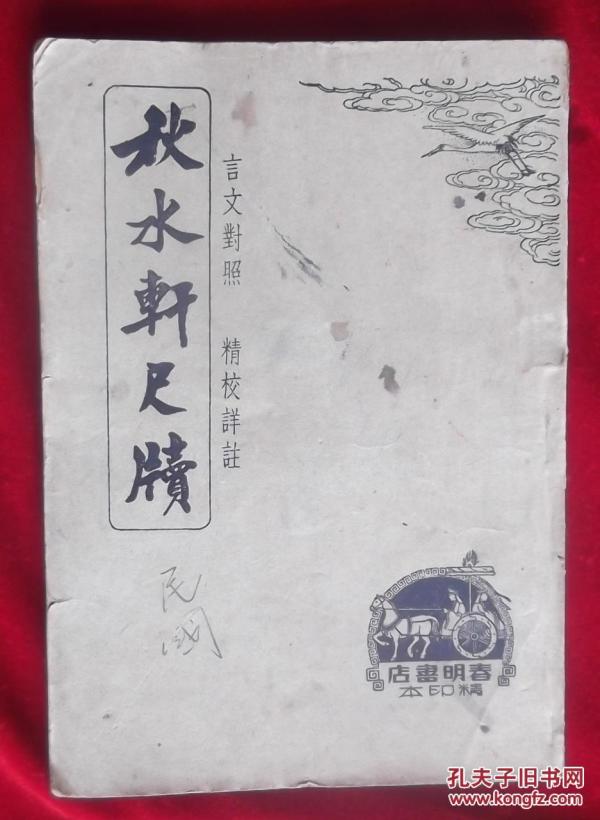 秋水軒尺牘
言文對照　精校詳註
民國
春明書店
精印本
孔夫子旧书网
www.kongfz.com